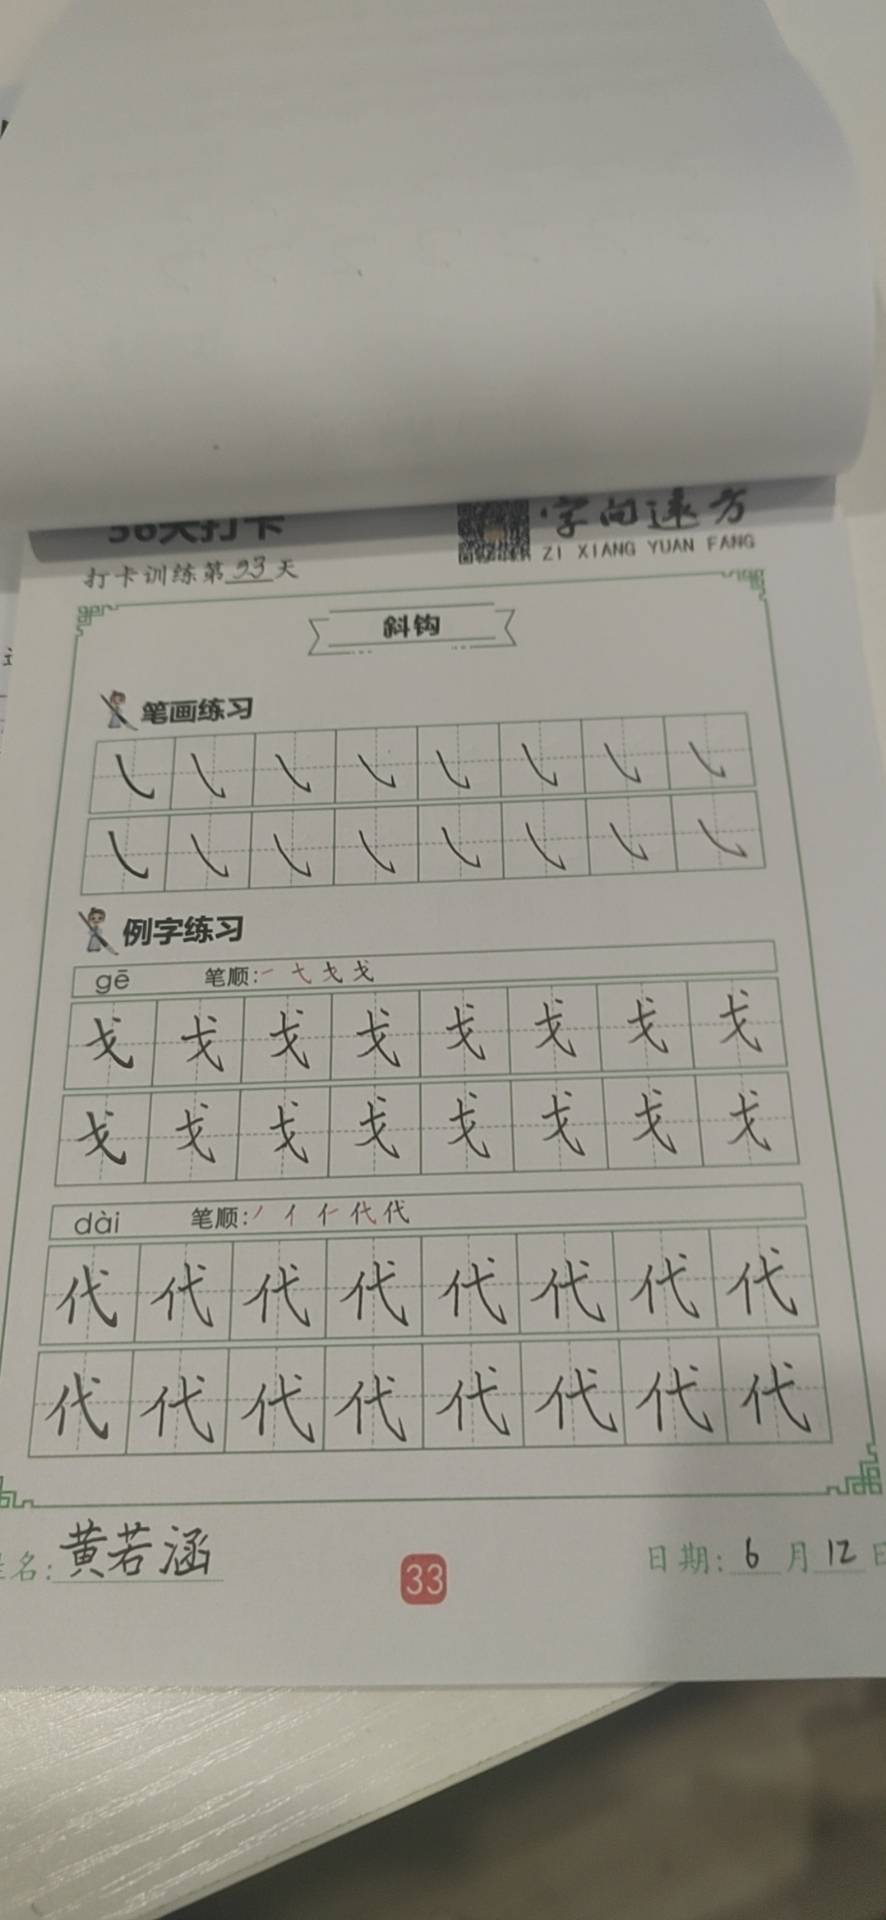 56天打卡
字向远方
ZI XIANG YUAN FANG
打卡训练第33天
斜钩
笔画练习
例字练习
gē 笔顺:
戈戈戈戈戈戈戈戈
戈戈戈戈戈戈戈戈
dài 笔顺: 代
代代代代代代代代
代代代代代代代代
姓名:黄若涵
33
日期:6月12日